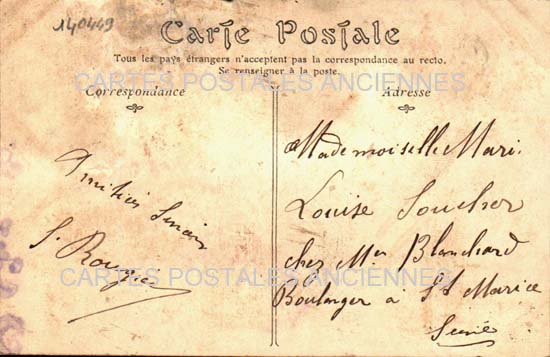 140449
Carte Postale
Tous les pays étrangers n'acceptent pas la correspondance au recto.
Se renseigner à la poste.
CARTES POSTALES ANCIENNES
Correspondance
Adresse
Amitiés
S. Rougie
CARTES POSTALES ANCIENNES
Mademoiselle Mari
Louise Soucher
chez Mr Blanchard
Boulanger à St Maurice
Seine